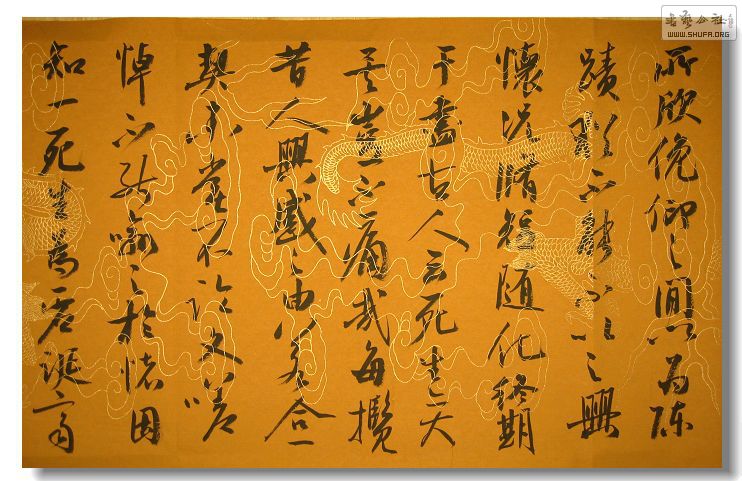 書藝公社
WWW.SHUFA.ORG
所欣俛仰之間以為陳
蹟猶不能不以之興
懷況脩短隨化終期
于盡古人云死生亦大
矣豈不痛哉每攬
昔人興感之由若合一
契未嘗不臨文嗟
悼不能喻之於懷固
知一死生為虛誕齊